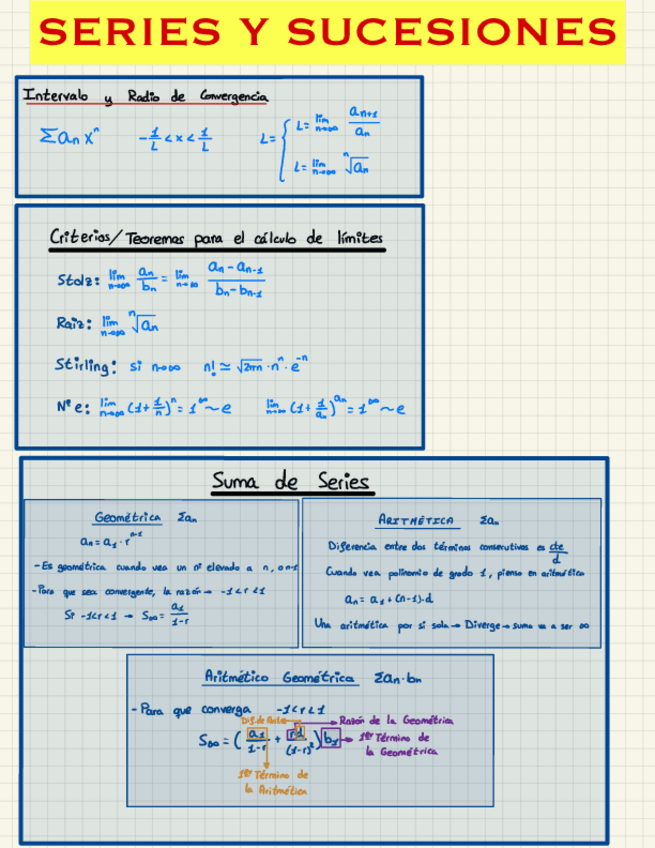 SERIES Y SUCESIONES
Intervalo y Radio de Convergencia
Σ aₙ xⁿ   -1/L < x < 1/L   L = { L = lim n→∞ aₙ₊₁/aₙ
L = lim n→∞ ⁿ√aₙ
Criterios/Teoremas para el cálculo de límites
Stolz: lim n→∞ aₙ/bₙ = lim n→∞ (aₙ - aₙ₋₁)/(bₙ - bₙ₋₁)
Raíz: lim n→∞ ⁿ√aₙ
Stirling: si n→∞   n! ≃ √2πn · nⁿ · e⁻ⁿ
Nº e: lim n→∞ (1 + 1/n)ⁿ = 1^∞ ~ e   lim n→∞ (1 + 1/aₙ)^aₙ = 1^∞ ~ e
Suma de Series
Geométrica   Σaₙ
aₙ = a₁ · rⁿ⁻¹
- Es geométrica cuando vea un nº elevado a n, o n-1
- Para que sea convergente, la razón → -1 < r < 1
Si -1<r<1 → S∞ = a₁/(1-r)
ARITMÉTICA   Σaₙ
Diferencia entre dos términos consecutivos es cte
d
Cuando vea polinomio de grado 1, pienso en aritmética
aₙ = a₁ + (n-1)·d
Una aritmética por si sola → Diverge → suma va a ser ∞
Aritmético Geométrica   Σaₙ·bₙ
- Para que converga   -1<r<1
Dif. de Arit.   Razón de la Geométrica
S∞ = (a₁/(1-r) + rd/(1-r)²) b₁ → 1er Término de
la Geométrica
1er Término de
la Aritmética